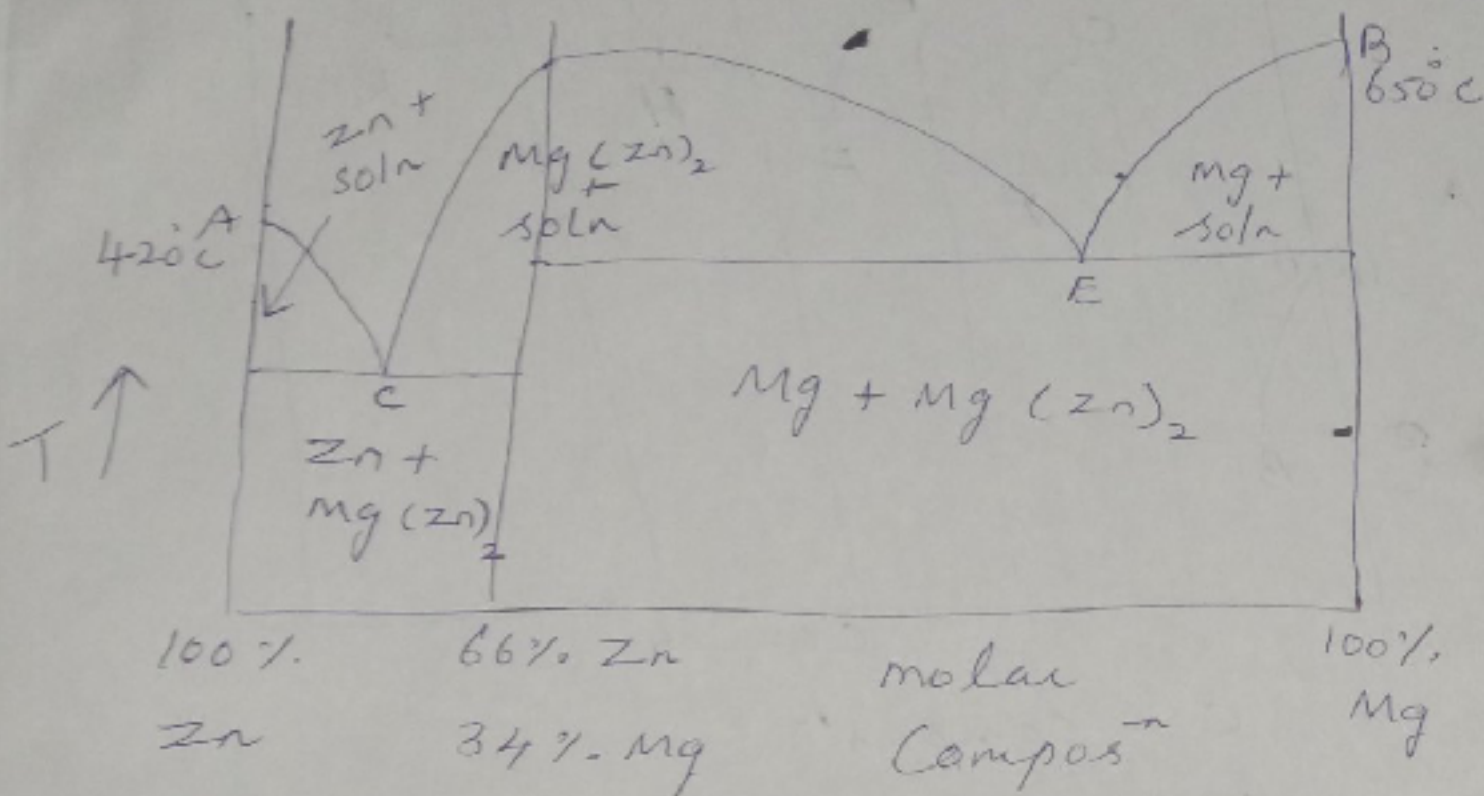 B
650°C
Zn +
soln
Mg (Zn)₂
+
soln
Mg +
soln
A
420°C
E
C
T
Mg + Mg (Zn)₂
Zn +
Mg (Zn)₂
100 %.
Zn
66 %. Zn
34 %. Mg
molar
Compos⁻ⁿ
100 %.
Mg